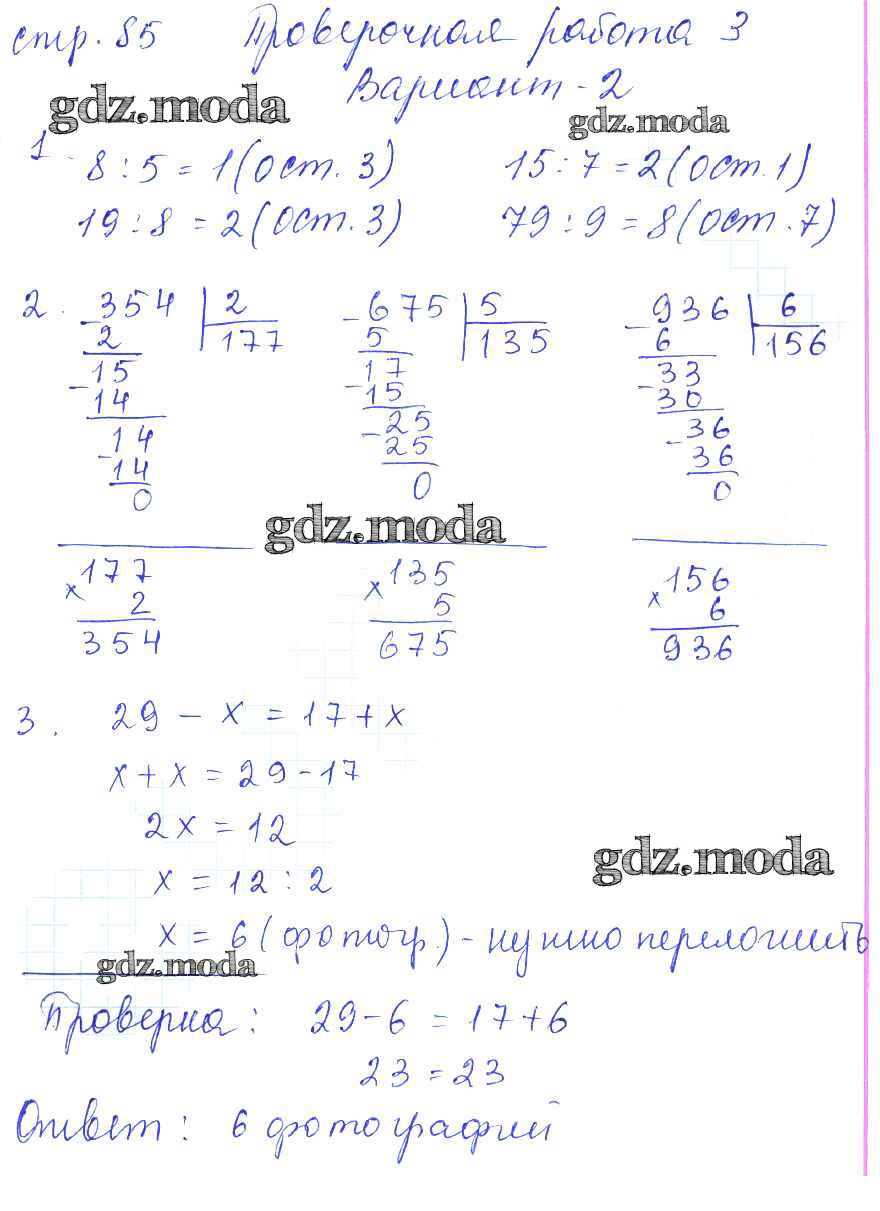 стр. 85 Проверочная работа 3
Вариант - 2
gdz.moda
gdz.moda
1 8 : 5 = 1 (ост. 3) 15 : 7 = 2 (ост. 1)
19 : 8 = 2 (ост. 3) 79 : 9 = 8 (ост. 7)
2. - 354 | 2 - 675 | 5 - 936 | 6
2 177 5 135 6 156
15 17 33
- 14 - 15 - 30
14 25 36
- 14 - 25 - 36
0 0 0
gdz.moda
x 177 x 135 x 156
2 5 6
354 675 936
3. 29 - x = 17 + x
x + x = 29 - 17
2x = 12
x = 12 : 2
gdz.moda
x = 6 (фотогр.) - нужно переложить
gdz.moda
Проверка: 29 - 6 = 17 + 6
23 = 23
Ответ: 6 фотографий